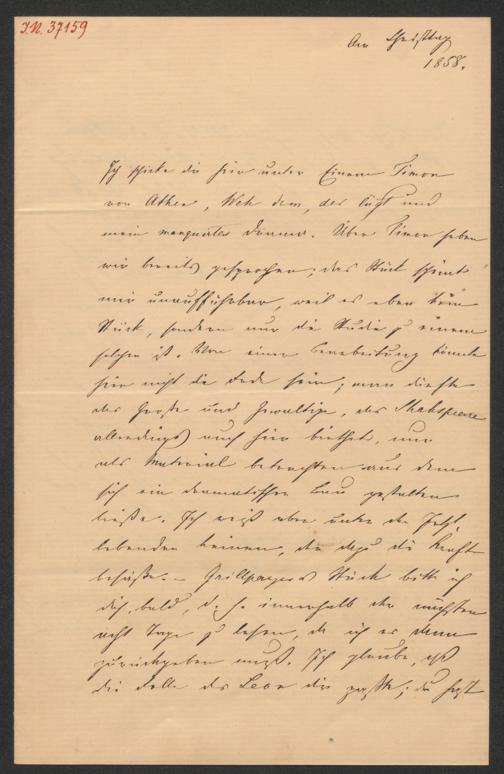 I.N. 37159
Am Christtag
1858.
Ich schicke dir hier unter Einem Timon
von Athen, Weh dem, der lügt und
mein manquirtes Drama. Über Timon haben
wir bereits gesprochen; das Stück scheint
mir unaufführbar, weil es eben kein
Stück, sondern nur die Studie zu einem
solchen ist. Von einer Bearbeitung könnte
hier nicht die Rede sein; man dürfte
das Große und Gewaltige, das Shakspeare
allerdings auch hier biethet, nur
als Material betrachten aus dem
sich ein dramatischer Bau gestalten
ließe. Ich weiß aber unter den Jetzt-
lebenden keinen, der dazu die Kraft
besäße. – Grillparzers Stück bitte ich
dich, bald, d. h. innerhalb der nächsten
acht Tage zu lesen, da ich es dann
zurückgeben muß. Ich glaube, daß
die Rolle des Leon dir paßte; du hast